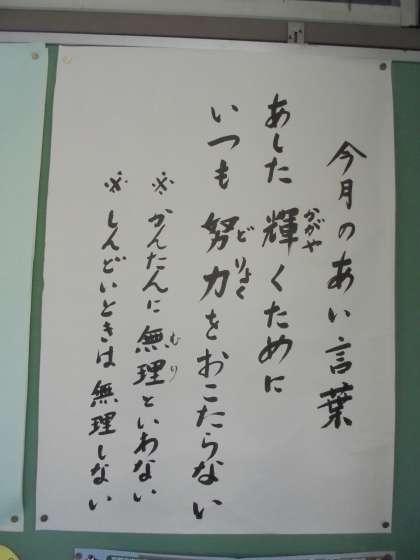 今月のあい言葉
あした輝くために
かがや
いつも努力をおこたらない
どりょく
※かんたんに無理といわない
むり
※しんどいときは無理しない